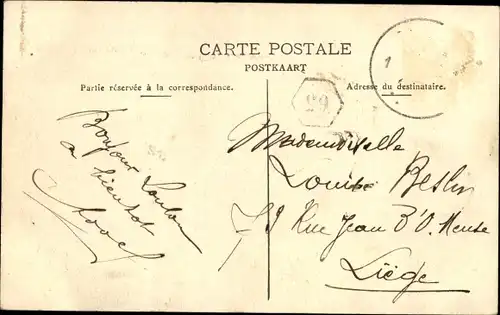 CARTE POSTALE
POSTKAART
Partie réservée à la correspondance.
Adresse du destinataire.
1
63
Bonjour Loulou
a bientot
Mademoiselle
Louise Beslin
79 Rue Jean D'O. Meuse
Liège